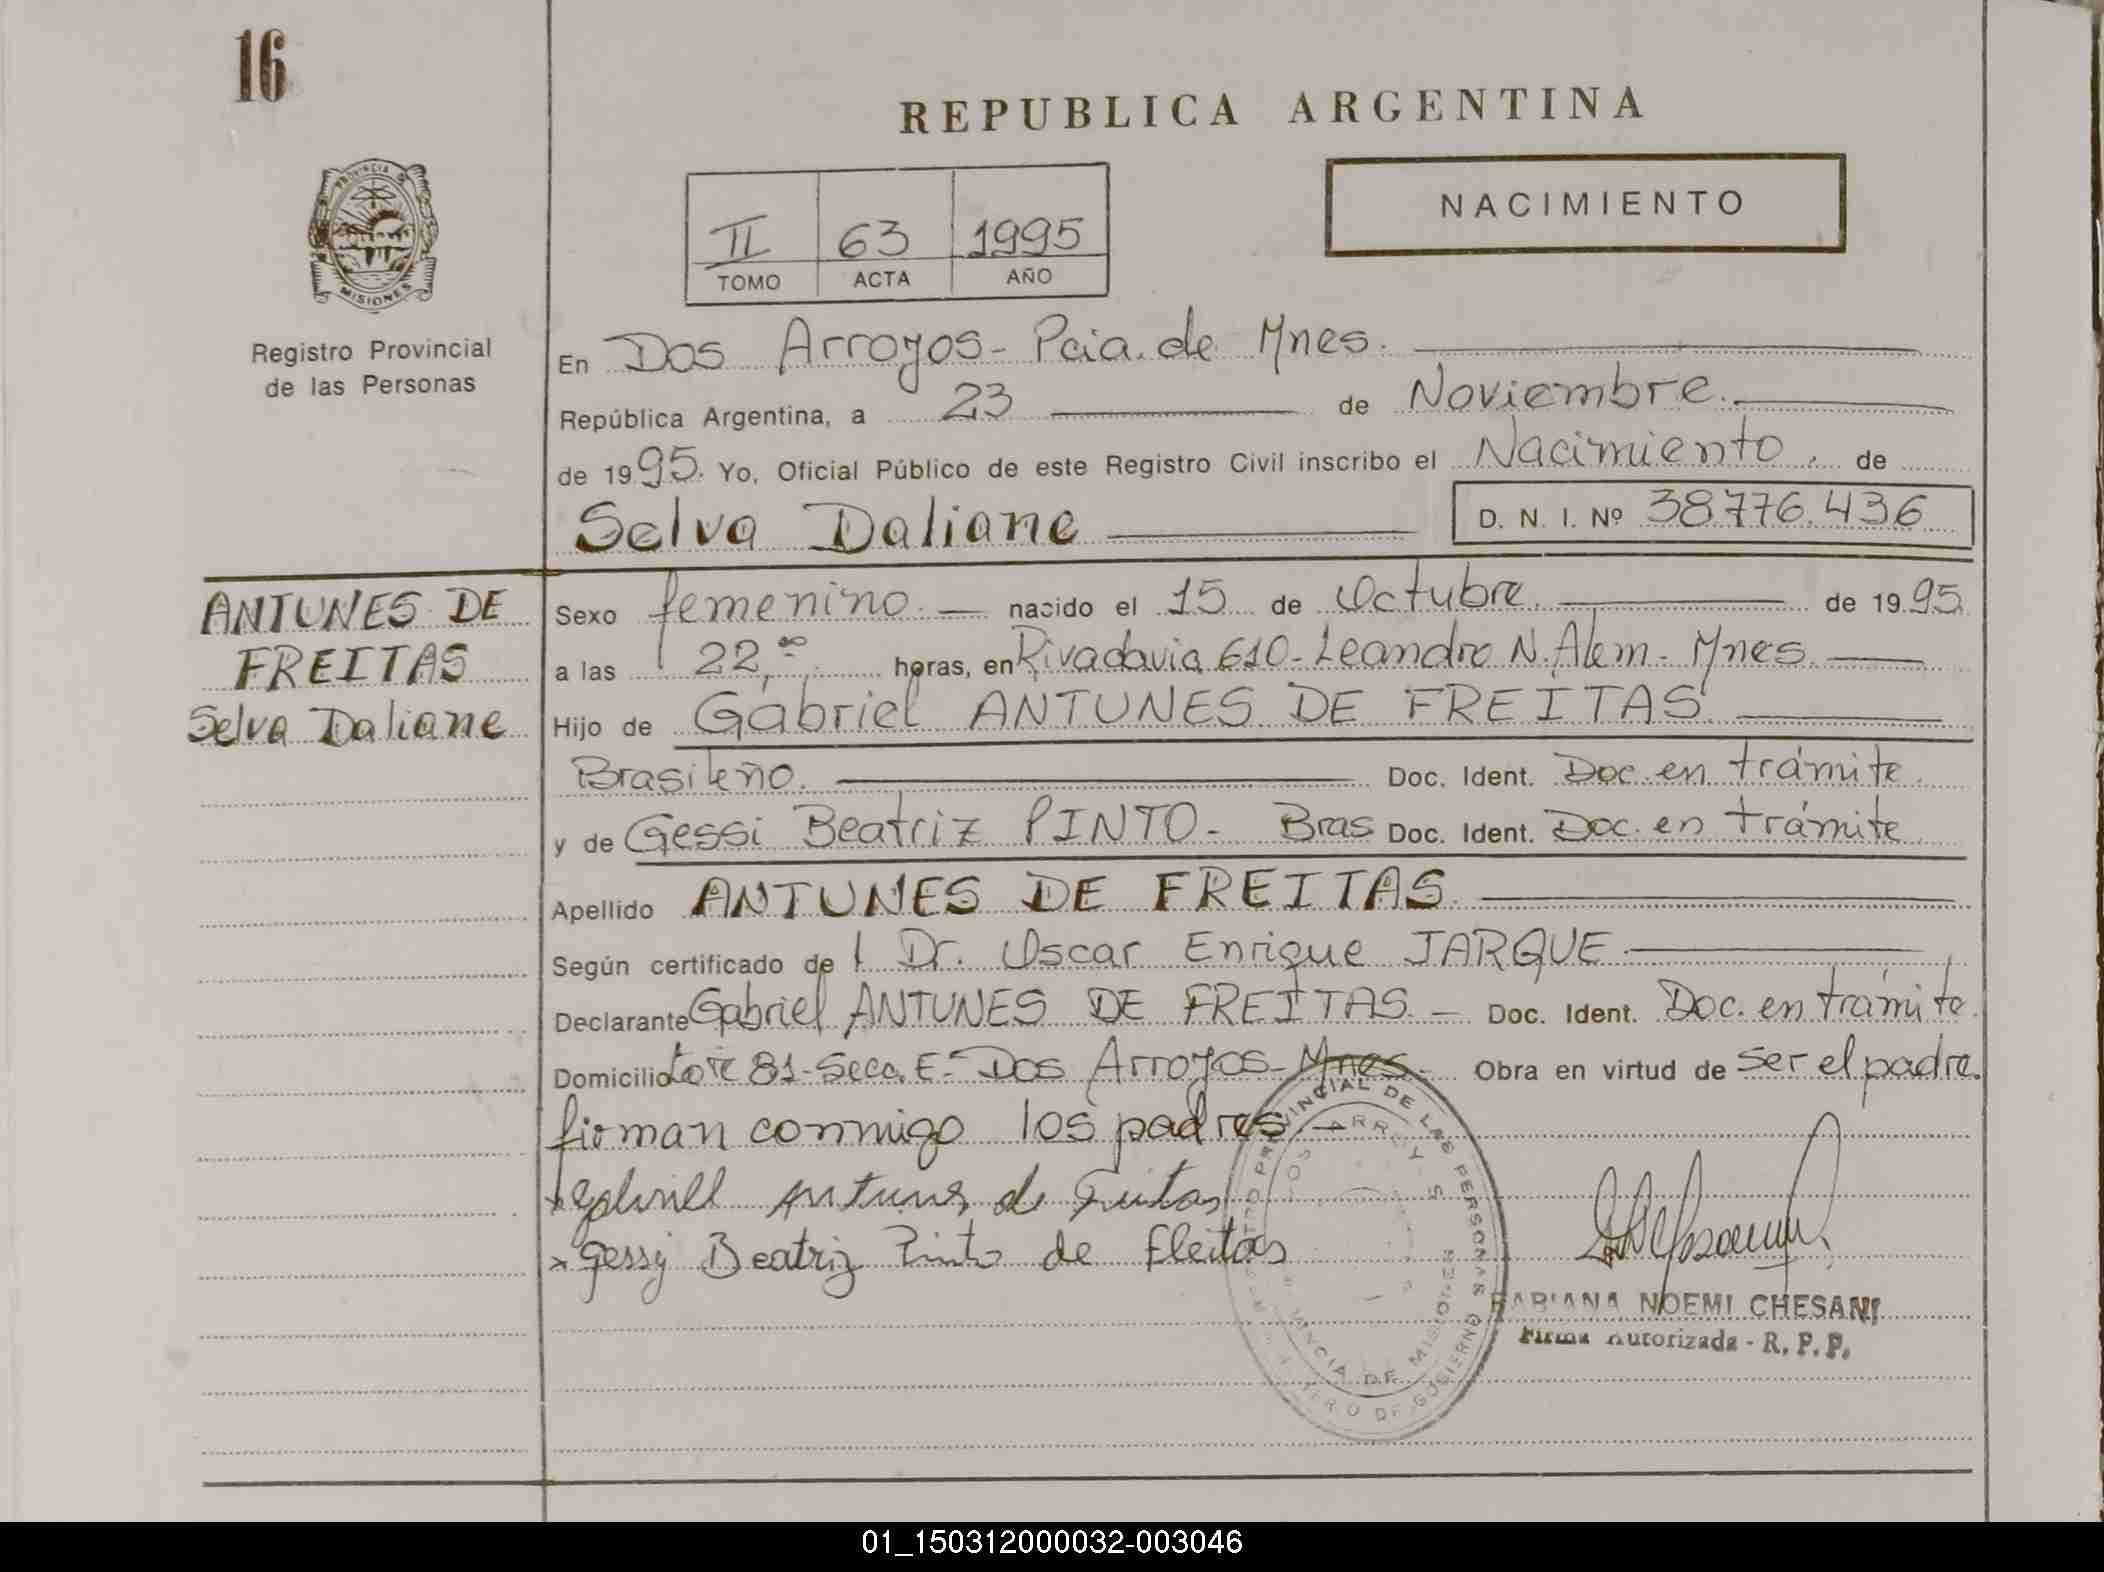 16
REPUBLICA ARGENTINA
NACIMIENTO
II 63 1995
TOMO ACTA AÑO
PROVINCIA DE
MISIONES
Registro Provincial
de las Personas
En Dos Arroyos - Pcia. de Mnes.
República Argentina, a 23 de Noviembre.
de 1995. Yo, Oficial Público de este Registro Civil inscribo el Nacimiento. de
Selva Daliane D. N. I. Nº 38.776.436
ANTUNES DE
FREITAS
Selva Daliane
Sexo femenino. nacido el 15 de Octubre. de 1995.
a las 22,00 horas, en Rivadavia 610 - Leandro N. Alem - Mnes.
Hijo de Gabriel ANTUNES DE FREITAS
Brasileño. Doc. Ident. Doc. en trámite.
y de Gessi Beatriz PINTO - Bras Doc. Ident. Doc. en trámite.
Apellido ANTUNES DE FREITAS.
Según certificado de l Dr. Oscar Enrique JARQUE.
Declarante Gabriel ANTUNES DE FREITAS. Doc. Ident. Doc. en trámite.
Domicilio Lote 81 - Secc. E - Dos Arroyos - Mnes. Obra en virtud de ser el padre.
firman conmigo los padres. -
x Antunes de Freitas
x Gessy Beatriz Pinto de Fleitas
PROVINCIAL DE LAS PERSONAS
PROVINCIA DE MISIONES
FABIANA NOEMI CHESANI
Firma Autorizada - R. P. P.
01_150312000032-003046